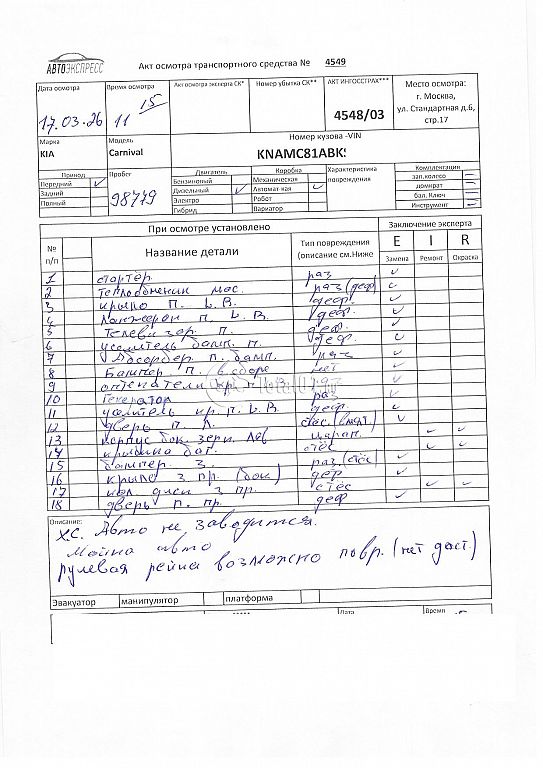 АВТОЭКСПРЕСС
Акт осмотра транспортного средства № 4549
Дата осмотра
17.03.26
Время осмотра
11 15
Акт осмотра эксперта СК*
Номер убытка СК**
АКТ ИНГОССТРАХ***
4548/03
Место осмотра:
г. Москва,
ул. Стандартная д.6,
стр.17
Марка
KIA
Модель
Carnival
Номер кузова -VIN
KNAMC81ABK
Привод
Передний
Задний
Полный
Пробег
98779
Двигатель
Бензиновый
Дизельный
Электро
Гибрид
Коробка
Механическая
Автомат-кая
Робот
Вариатор
Характеристика
повреждения
Комплектация
зап.колесо
домкрат
бал. Ключ
Инструмент
При осмотре установлено
Заключение эксперта
№
п/п
Название детали
Тип повреждения
(описание см.Ниже
E I R
Замена Ремонт Окраска
1 стартер раз
2 Теплообменник мас. раз (деф)
3 крыло п. L.В. деф.
4 Лонжерон п. L.В. деф.
5 Телевизор. п. деф.
6 усилитель бамп. п. деф.
7 Абсорбер п. бамп. раз
8 Бампер п. в сборе
9
10 Генератор раз
11 усилитель кр. п. L.В. деф.
12 дверь п. Л.
13 корпус бок. зерк. Лев царап.
14 крышка баг. стёс
15 бампер з. раз (стёс)
16 крыло з пр. (бок) деф
17 кол. диск з пр. стёс
18 дверь п. пр. деф
Описание:
х.с. Авто не заводится.
Мойка авто
Рулевая рейка возможно повр. (нет дост.)
Эвакуатор манипулятор платформа
Дата
Время